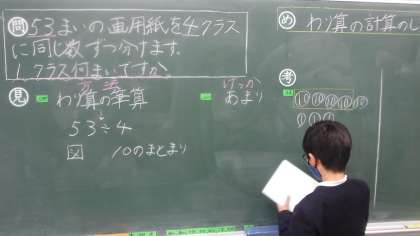 問 53まいの画用紙を4クラス
に同じ数ずつ分けます.
1クラス何まいですか.
め わり算の計算のし
見 方法
わり算の筆算
けっか
あまり
53÷4
図 10のまとまり
考
10 10 10 10 10
1 1 1